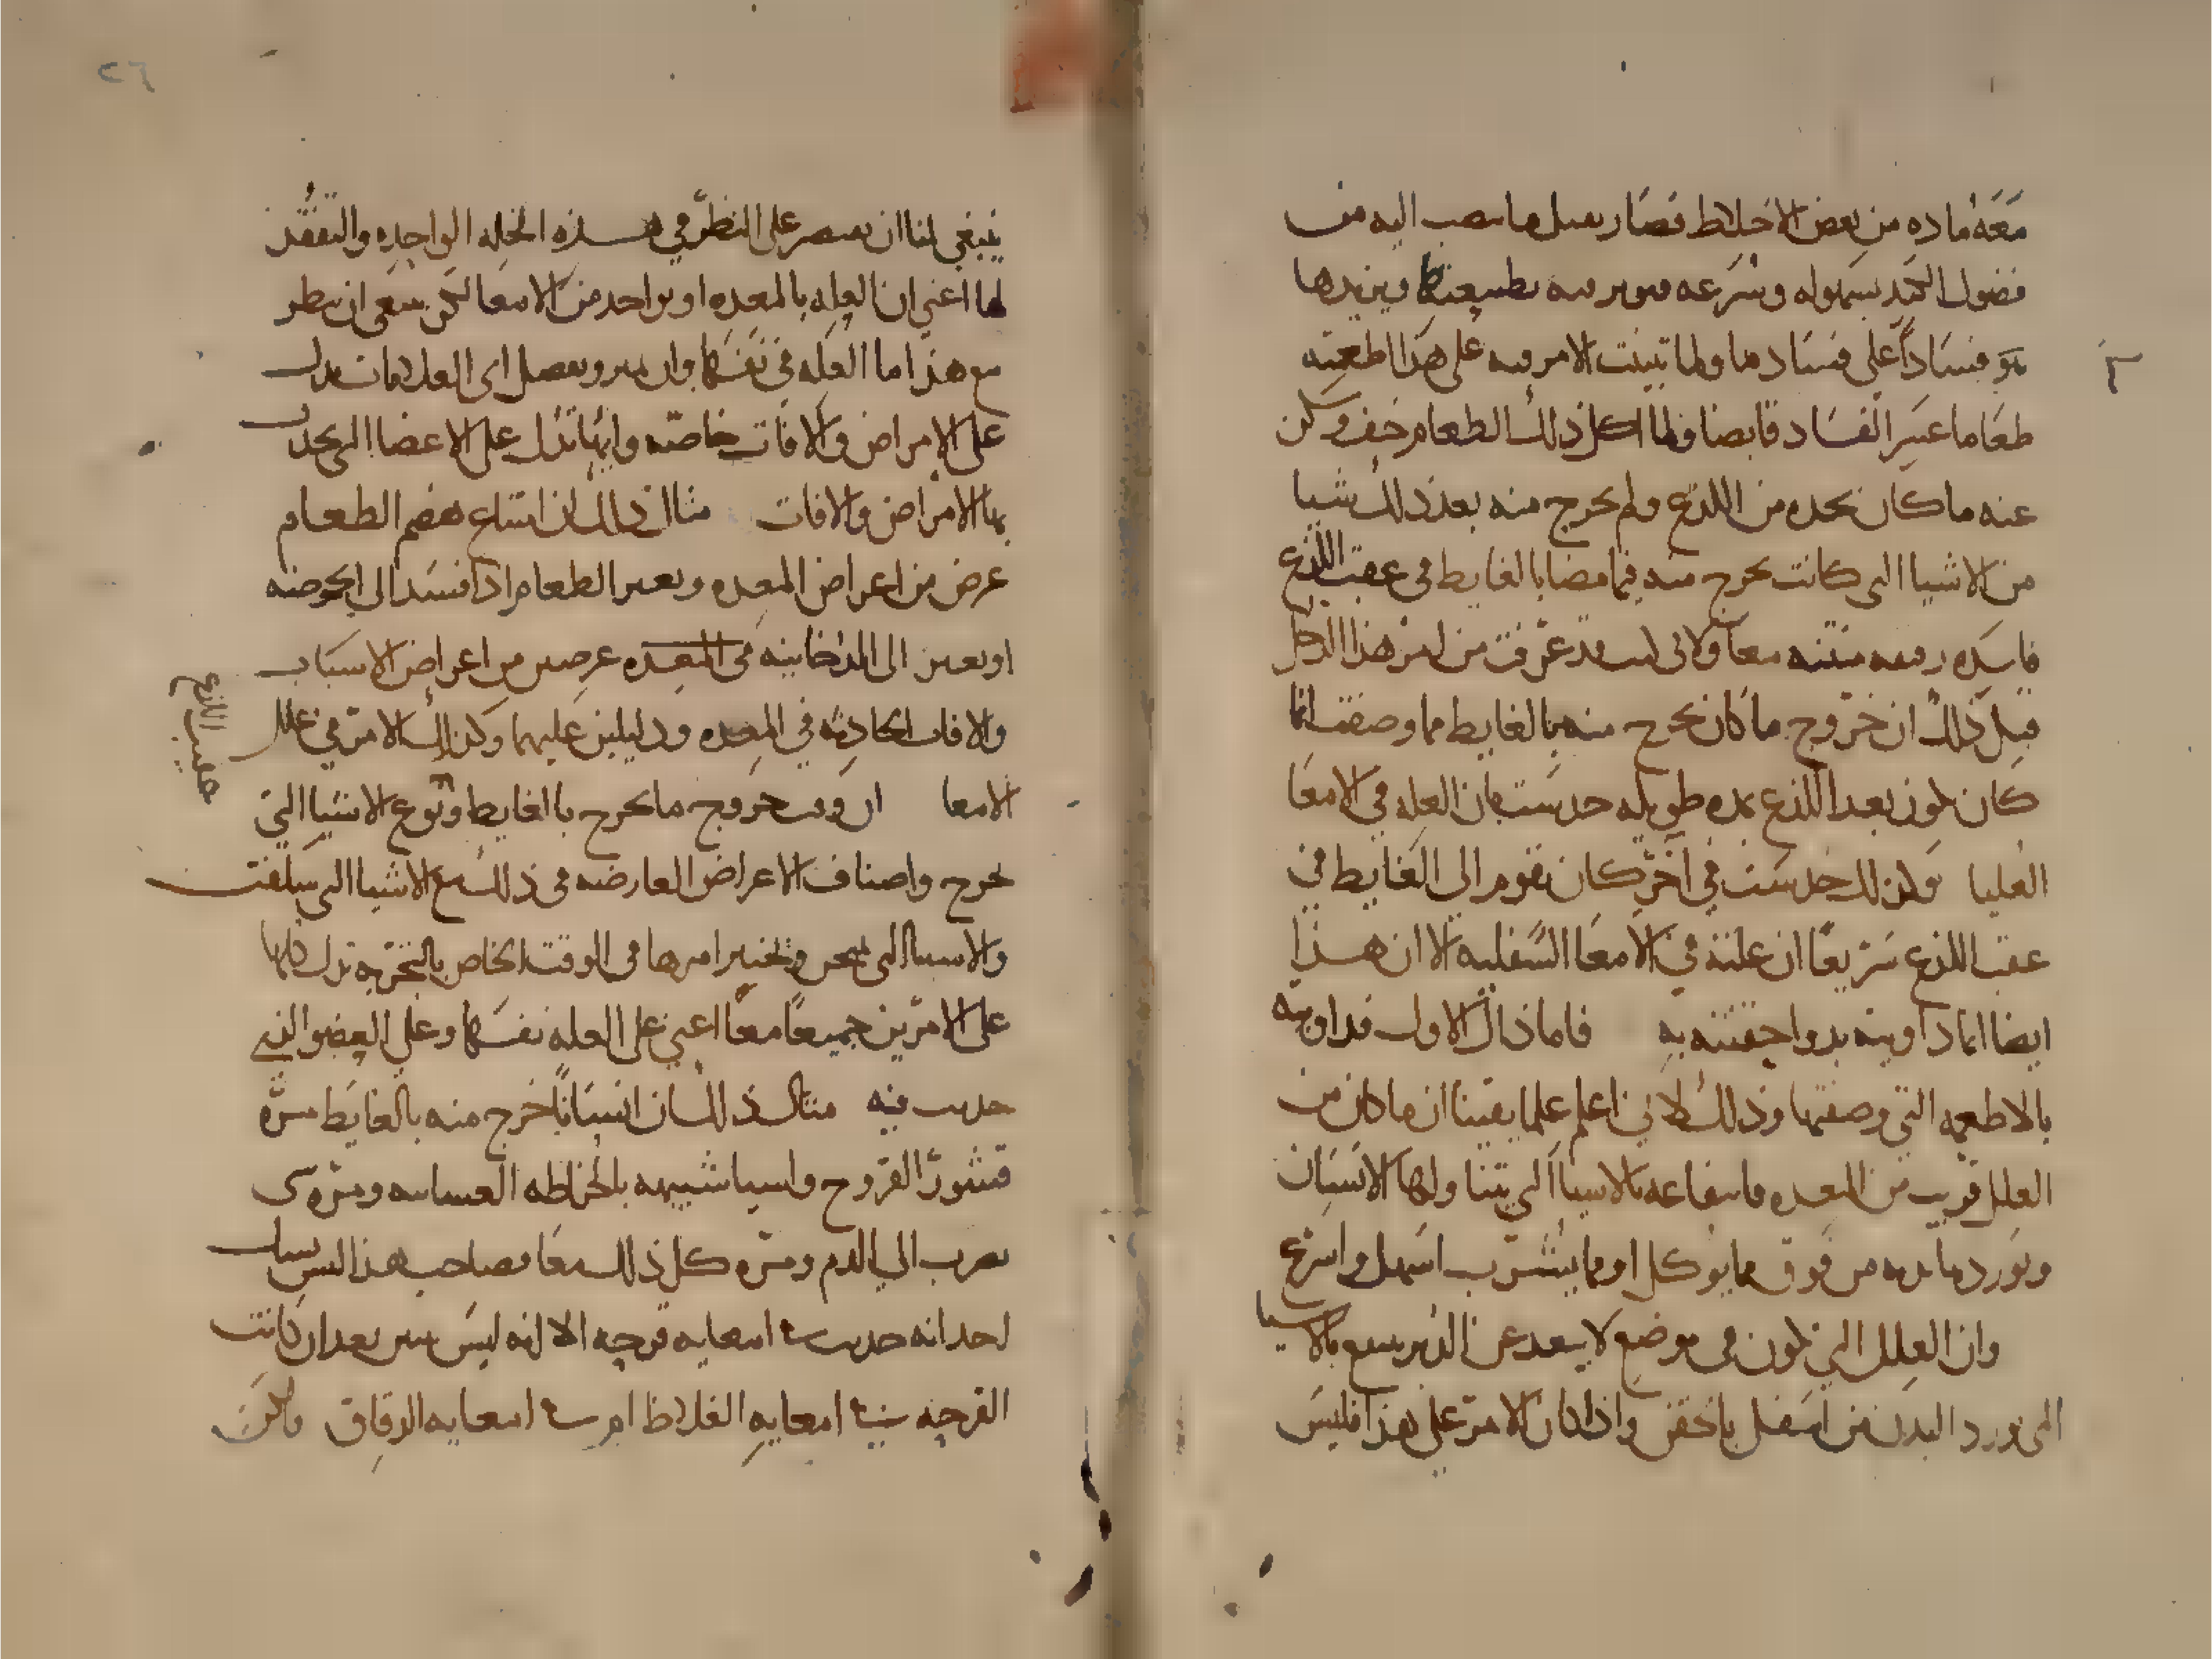 معه مادة من بعض الاخلاط فصار يقبل ما ينصب اليه من
فضول الكبد بسهوله وسرعه فيوثر فيه بطبيعتها ويزيدها
هو فسادا على فسادها ولما تبينت الامر فيه على هذا اطعمته
طعاما عسر الفساد قابضا فلما اكل ذلك الطعام خف وسكن
عنه ما كان يجده من اللذع ولم يخرج منه بعد ذلك شيا
من الاشيا التي كانت تخرج منه فيما مضا بالغايط في عقب اللذع
فاسده رقيقه منتنه معا ولاني كنت قد عرفت من امر هذا الرجل
قبل ذلك ان خروج ما كان يخرج منه بالغايط مما وصفت انما
كان يكون بعد اللذع بمده طويله حدست بان العله في الامعا
العليا وكذلك حدست في اخر كان يقوم الى الغايط في
عقب اللذع سريعا ان علته في الامعا السفليه الا ان هذا
ايضا انما داويته بدوا حقنته به فاما ذاك الاول فداويته
بالاطعمه التي وصفتها وذلك لاني اعلم علما يقينا ان ما كان من
العلل قريب من المعده فانتفاعه بالاشيا التي يتناولها الانسان
ويورد بها بدنه من فوق مما يوكل او مما يشرب اسهل واسرع
وان العلل التي تكون في موضع لا يبعد عن الدبر ينتفع بالاشيا
التي تورد البدن من اسفل بالحقن واذا كان الامر على هذا فليس
ينبغي لنا ان نقتصر على النظر في هذه الخله الواحده والتفقد
لها اعني ان العله بالمعده او بواحد من الامعا لكن ينبغي ان ننظر
مع هذا ما العله في نفسها وان نميز ونفصل اي العلامات تدل
على الامراض والافات خاصه وايها تدل على الاعضا التي تحدث
بها الامراض والافات مثال ذلك ان امتناع هضم الطعام
عرض من اعراض المعده وتغير الطعام اذا فسد الى الحموضه
او تغير الى الدخانيه في المعده عرضين من اعراض الاسباب
والافات الحادثه في المعده ودليلين عليهما وكذلك الامر في علل
الامعا ان وقت خروج ما يخرج بالغايط ونوع الاشيا التي
تخرج واصناف الاعراض العارضه في ذلك مع الاشيا التي سلفت
والاشيا التي تمتحن وتختبر امرها في الوقت الخاص بالتجربه تدل كلها
على الامرين جميعا معا اعني على العله نفسها وعلى العضو الذي
حدثت فيه مثال ذلك ان انسانا خرج منه بالغايط مره
قشور القروح واشيا شبيهه بالخراطه الغشاييه ومره شي
يضرب الى الدم ومره كل ذلك معا فصاحب هذا
حدثت امعايه قرحه الا انه ليس يتبين بعد ان كانت
القرحه في امعايه الغلاظ ام في امعايه الدقاق ولكن
عقب اللذع